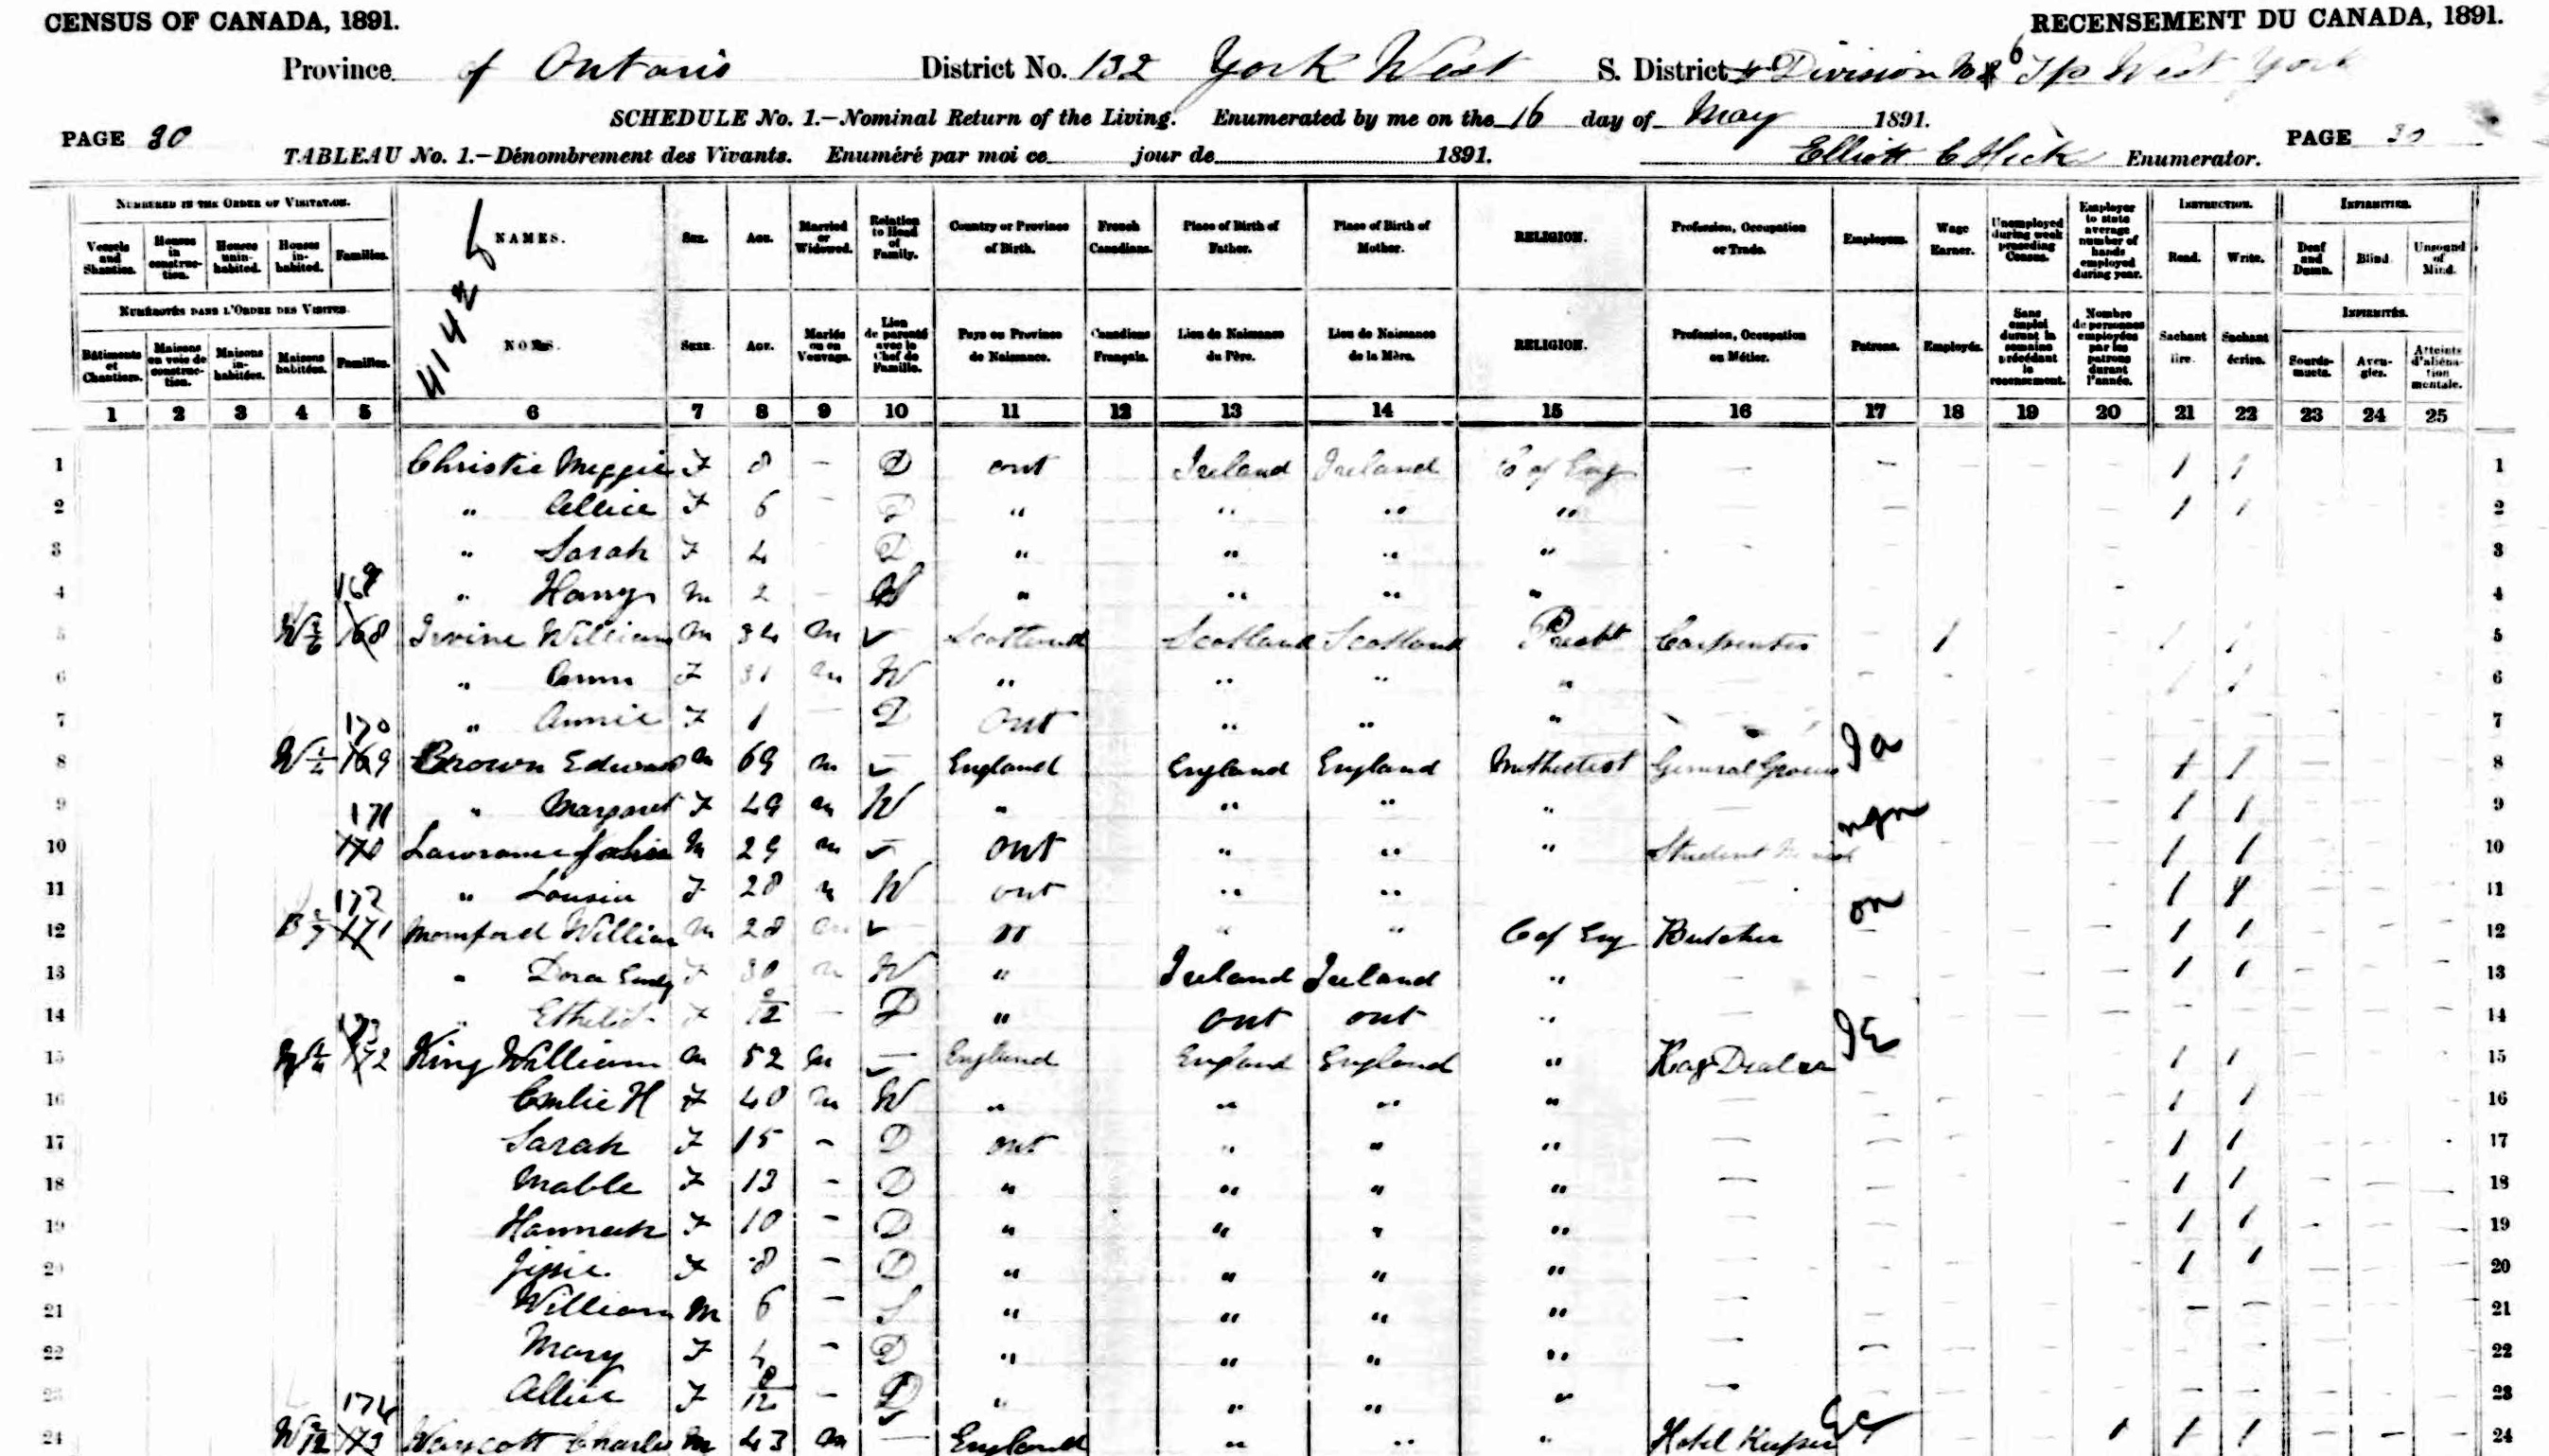 CENSUS OF CANADA, 1891. RECENSEMENT DU CANADA, 1891.
Province of Ontario District No. 132 York West S. District Division No 6 Tp West York
SCHEDULE No. 1.—Nominal Return of the Living. Enumerated by me on the 16 day of May 1891.
PAGE 30 PAGE 30
TABLEAU No. 1.—Dénombrement des Vivants. Enuméré par moi ce jour de 1891. Elliott C Hick Enumerator.
NUMBERED IN THE ORDER OF VISITATION.
Vessels and Shanties. Houses in construction. Houses uninhabited. Houses inhabited. Families. NAMES. SEX. AGE. Married or Widowed. Relation to Head of Family. Country or Province of Birth. French Canadians. Place of Birth of Father. Place of Birth of Mother. RELIGION. Profession, Occupation or Trade. Employers. Wage Earner. Unemployed during week preceding Census. Employer to state average number of hands employed during year. INSTRUCTION. Read. Write. INFIRMITIES. Deaf and Dumb. Blind. Unsound of Mind.
NUMÉROTÉS DANS L'ORDRE DES VISITES.
Bâtiments et Chantiers. Maisons en voie de construction. Maisons inhabitées. Maisons habitées. Familles. NOMS. SEXE. AGE. Mariés ou en Veuvage. Lien de parenté avec le Chef de Famille. Pays ou Province de Naissance. Canadiens Français. Lieu de Naissance du Père. Lieu de Naissance de la Mère. RELIGION. Profession, Occupation ou Métier. Patrons. Employés. Sans emploi durant la semaine précédant le recensement. Nombre de personnes employées par les patrons durant l'année. Sachant lire. Sachant écrire. INFIRMITÉS. Sourds-muets. Aveugles. Atteints d'aliénation mentale.
1 2 3 4 5 6 7 8 9 10 11 12 13 14 15 16 17 18 19 20 21 22 23 24 25
1 Christie Meggie F 8 – D ont Ireland Ireland C of Eng – – 1 1 1
2 " Allice F 6 – D " " " " – 1 1 2
3 " Sarah F 4 D " " " " 3
4 " Harry M 2 – S " " " " 4
169
5 168 Irvine William M 34 M Scotland Scotland Scotland Presbt Carpenter 1 1 1 5
6 " Ann F 31 M W " " " " 1 1 6
7 " Annie F 1 – D Ont " " " 7
170
8 169 Brown Edward M 69 M – England England England Methodist General Grocer 1 1 8
9 " Margaret F 49 M W " " " " 1 1 9
171
10 170 Lawrance John M 29 M – Ont " " " Student 1 1 10
11 " Lousia F 28 M W ont " " 1 1 11
172
12 171 Momford William M 28 M " " " C of Eng Butcher – 1 1 12
13 " Dora Emly F 30 M W " Ireland Ireland " – 1 1 13
14 " F – D " ont ont " 14
173
15 172 King William M 52 M – England England England " Rag Dealer 1 1 15
16 Emlie H F 40 M W " " " " 1 1 16
17 Sarah F 15 – D ont " " " – 1 1 17
18 Mable F 13 – D " " " " – 1 1 18
19 Hannah F 10 – D " " " " – 1 1 19
20 Jissie F 8 – D " " " " 1 1 20
21 William M 6 – S " " " " – – 21
22 Mary F 4 – D " " " " 22
23 Allice F – D " " " " 23
174
24 173 Charles M 43 M – England " " " Hotel Keeper 1 1 1 24